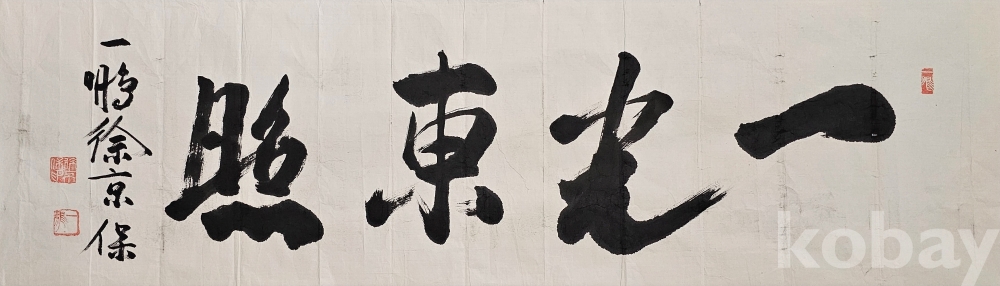 一光東照
一鵬徐京保
kobay